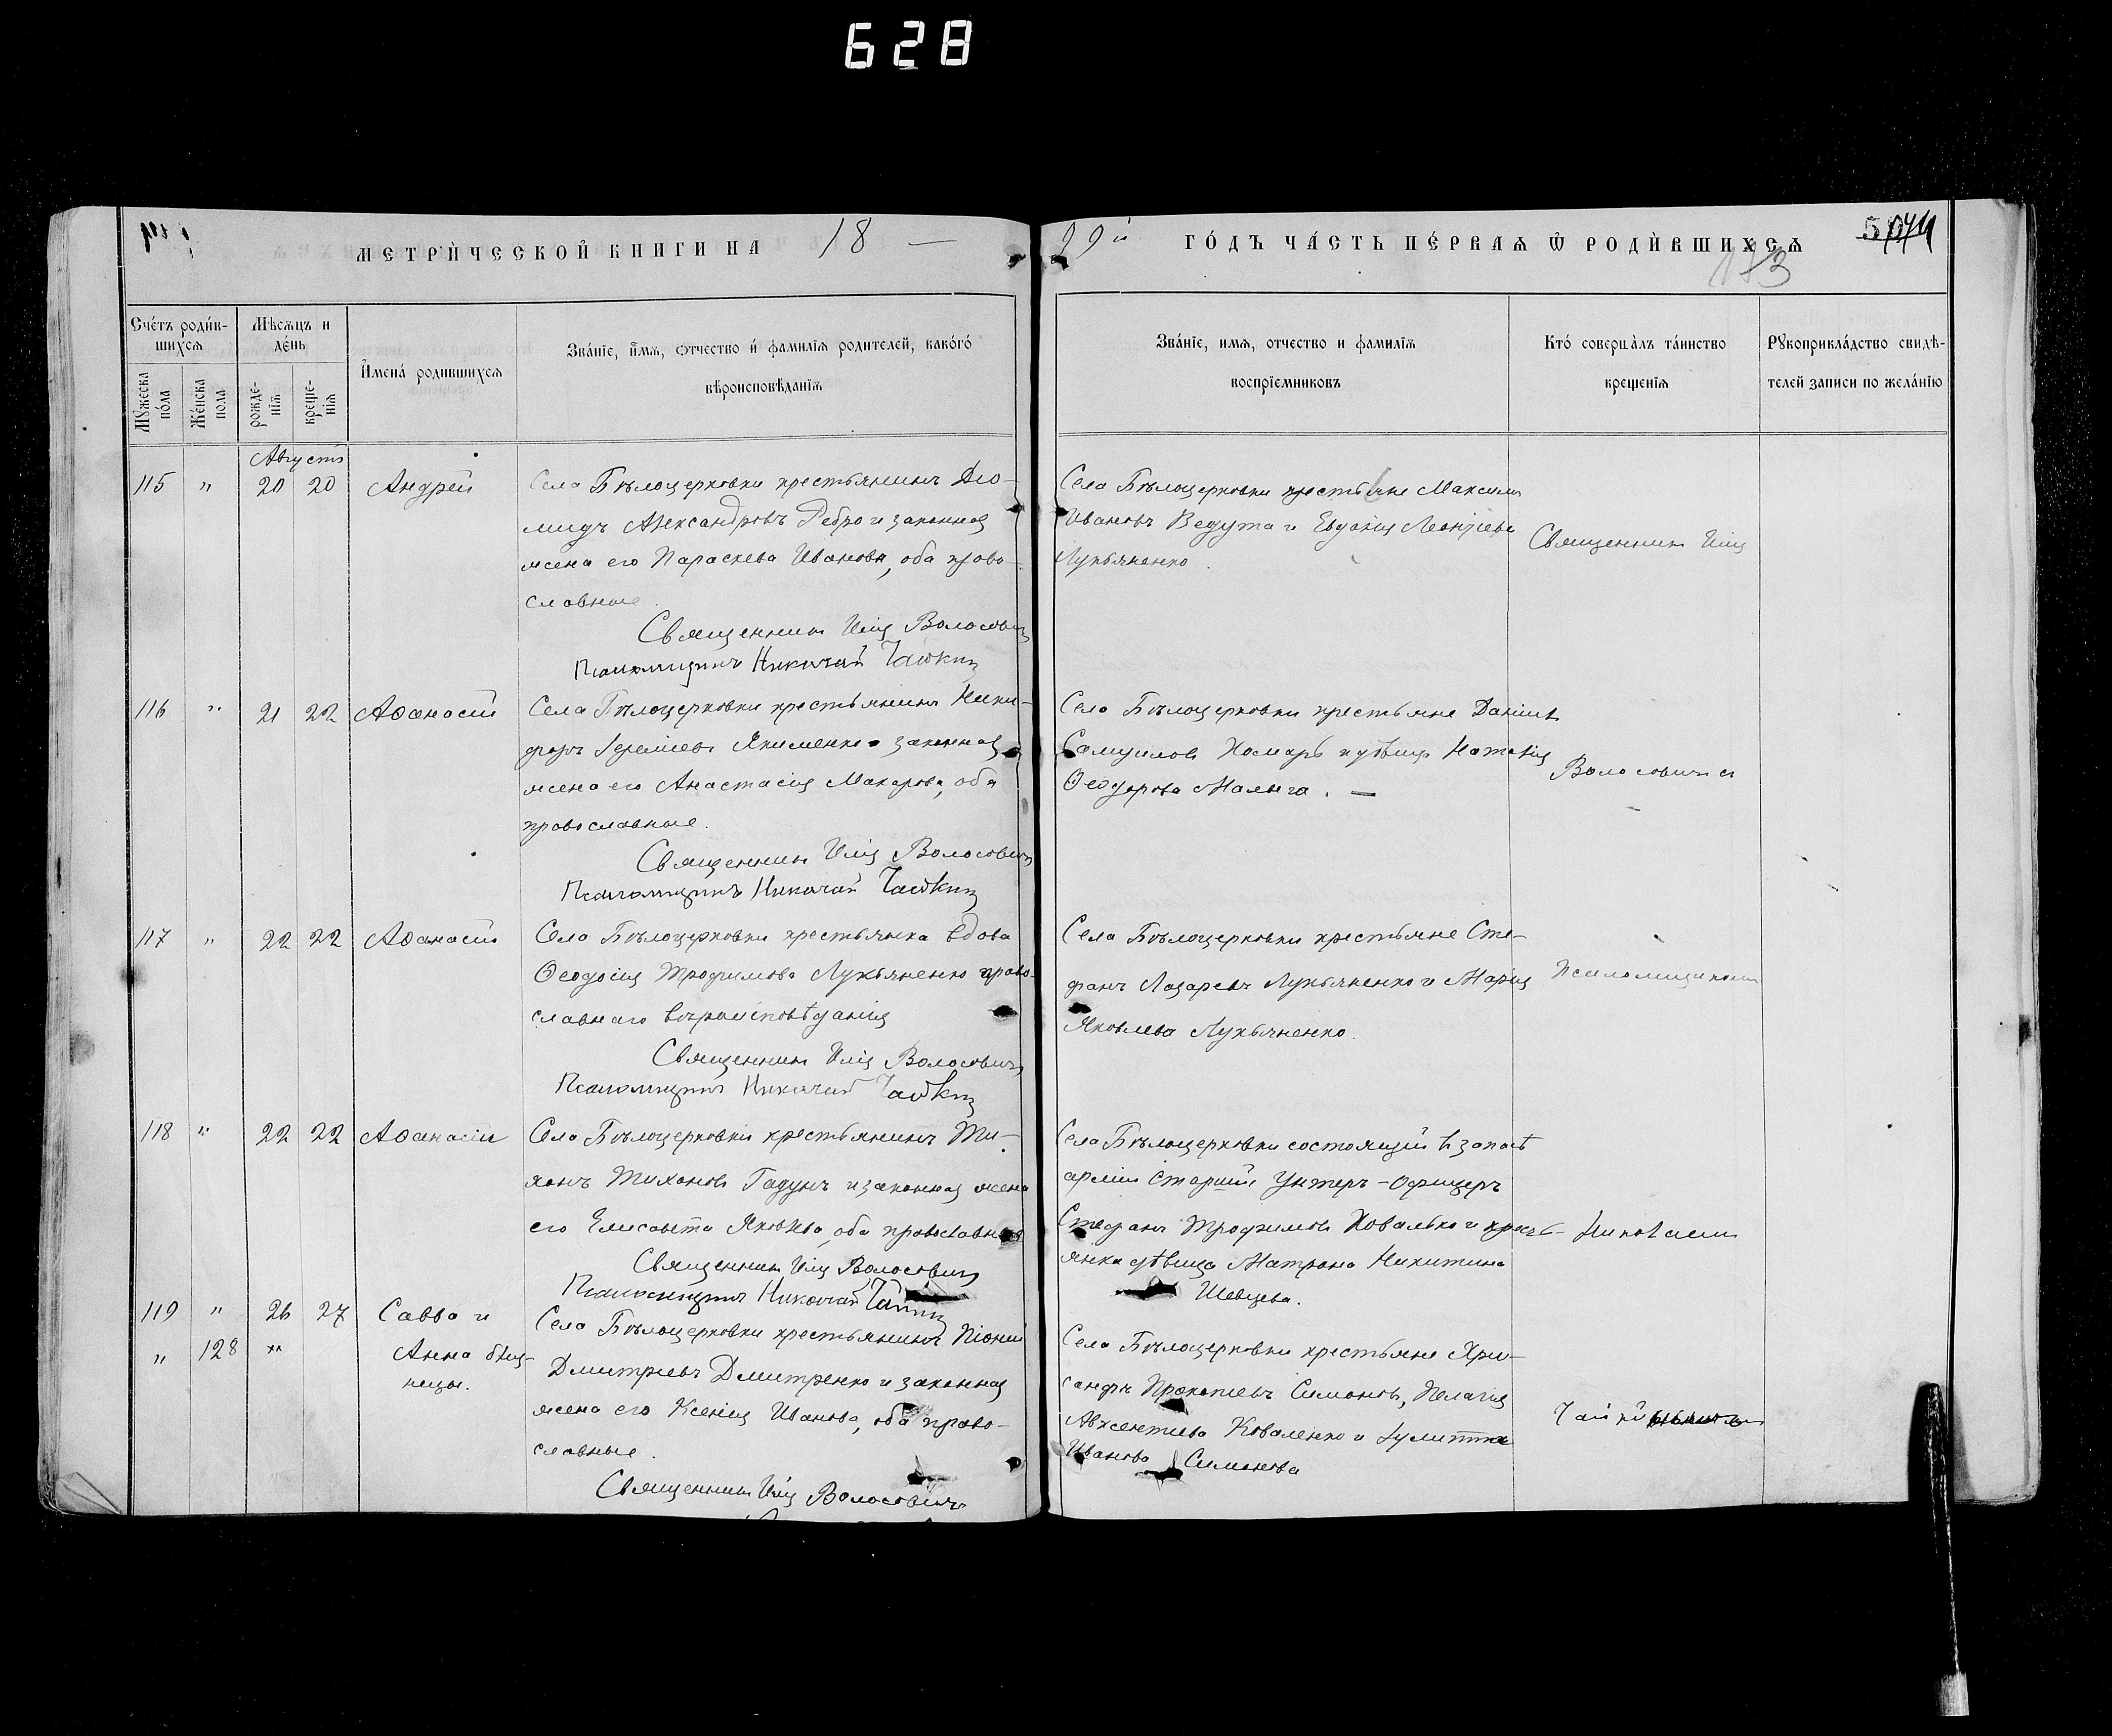 628
МЕТРИ́ЧЕСКОЙ КНИГИ НА 18 —
99й ГО́ДЪ ЧА́СТЬ ПЕ́РВАѦ Ѿ РОДИ́ВШИХСѦ
Сче́тъ роди́в-
шихсѧ
Мѣсѧцъ и
де́нь
Мꙋжеска
по́ла
Же́нска
пола
рожде-
нїѧ
креще-
нїѧ
И҆мена́ родившихсѧ
Зва́нїе, и҆́мѧ, ѻтчество и҆ фамилїѧ родителей, како́гѡ
вѣроисповѣданїѧ
Зва́нїе, имѧ, отчество и фамилїѧ
воспрїемниковъ
Кто́ соверша̀лъ та́инство
крещенїѧ
Рꙋкоприкла́дство свидѣ-
телей записи по жела́нїю
Августъ
115 " 20 20 Андрей
Села Бѣлоцерковки крестьянинъ Дїо-
мидъ Александровъ Ребро и законная
жена его Параскева Иванова, оба право-
славные.
Священникъ Илія Волосовичъ
Псаломщикъ Николай
Села Бѣлоцерковки крестьяне Максимъ
Ивановъ Ведута и Евдокія Леонтіева
Лукьяненко.
Священникъ Илія
116 " 21 22 Аѳанасій
Села Бѣлоцерковки крестьянинъ Ники-
форъ Іереміевъ Якименко и законная
жена его Анастасія Макарова, оба
православные.
Священникъ Илія Волосовичъ
Псаломщикъ Николай
Села Бѣлоцерковки крестьяне Даніилъ
Самуиловъ Комаръ и дѣвица Наталія
Ѳеодорова Малыга. —
Волосовичъ съ
117 " 22 22 Аѳанасій
Села Бѣлоцерковки крестьянка вдова
Ѳеодосія Трофимова Лукьяненко право-
славнаго вѣроисповѣданія
Священникъ Илія Волосовичъ
Псаломщикъ Николай
Села Бѣлоцерковки крестьяне Сте-
фанъ Лазаревъ Лукьяненко и Марія
Яковлева Лукьяненко.
Псаломщикомъ
118 " 22 22 Аѳанасій
Села Бѣлоцерковки крестьянинъ Ти-
хонъ Тихоновъ Гадунъ и законная жена
его Елисавета Яковлева, оба православные
Священникъ Илія Волосовичъ
Псаломщикъ Николай
Села Бѣлоцерковки состоящій въ запасѣ
арміи старшій Унтеръ-Офицеръ
Стефанъ Трофимовъ Ковалько и кресть-
янка дѣвица Матрона Никитина
Шевцева.
Николаемъ
119 " 26 27 Савва и
" 128 "" Анна близ-
нецы.
Села Бѣлоцерковки крестьянинъ Піоній
Дмитріевъ Дмитренко и законная
жена его Ксенія Иванова, оба право-
славные.
Священникъ Илія Волосовичъ
Села Бѣлоцерковки крестьяне Хри-
санфъ Прокопіевъ Симоновъ, Пелагія
Авксентіева Коваленко и Іулитта
Иванова Симонова